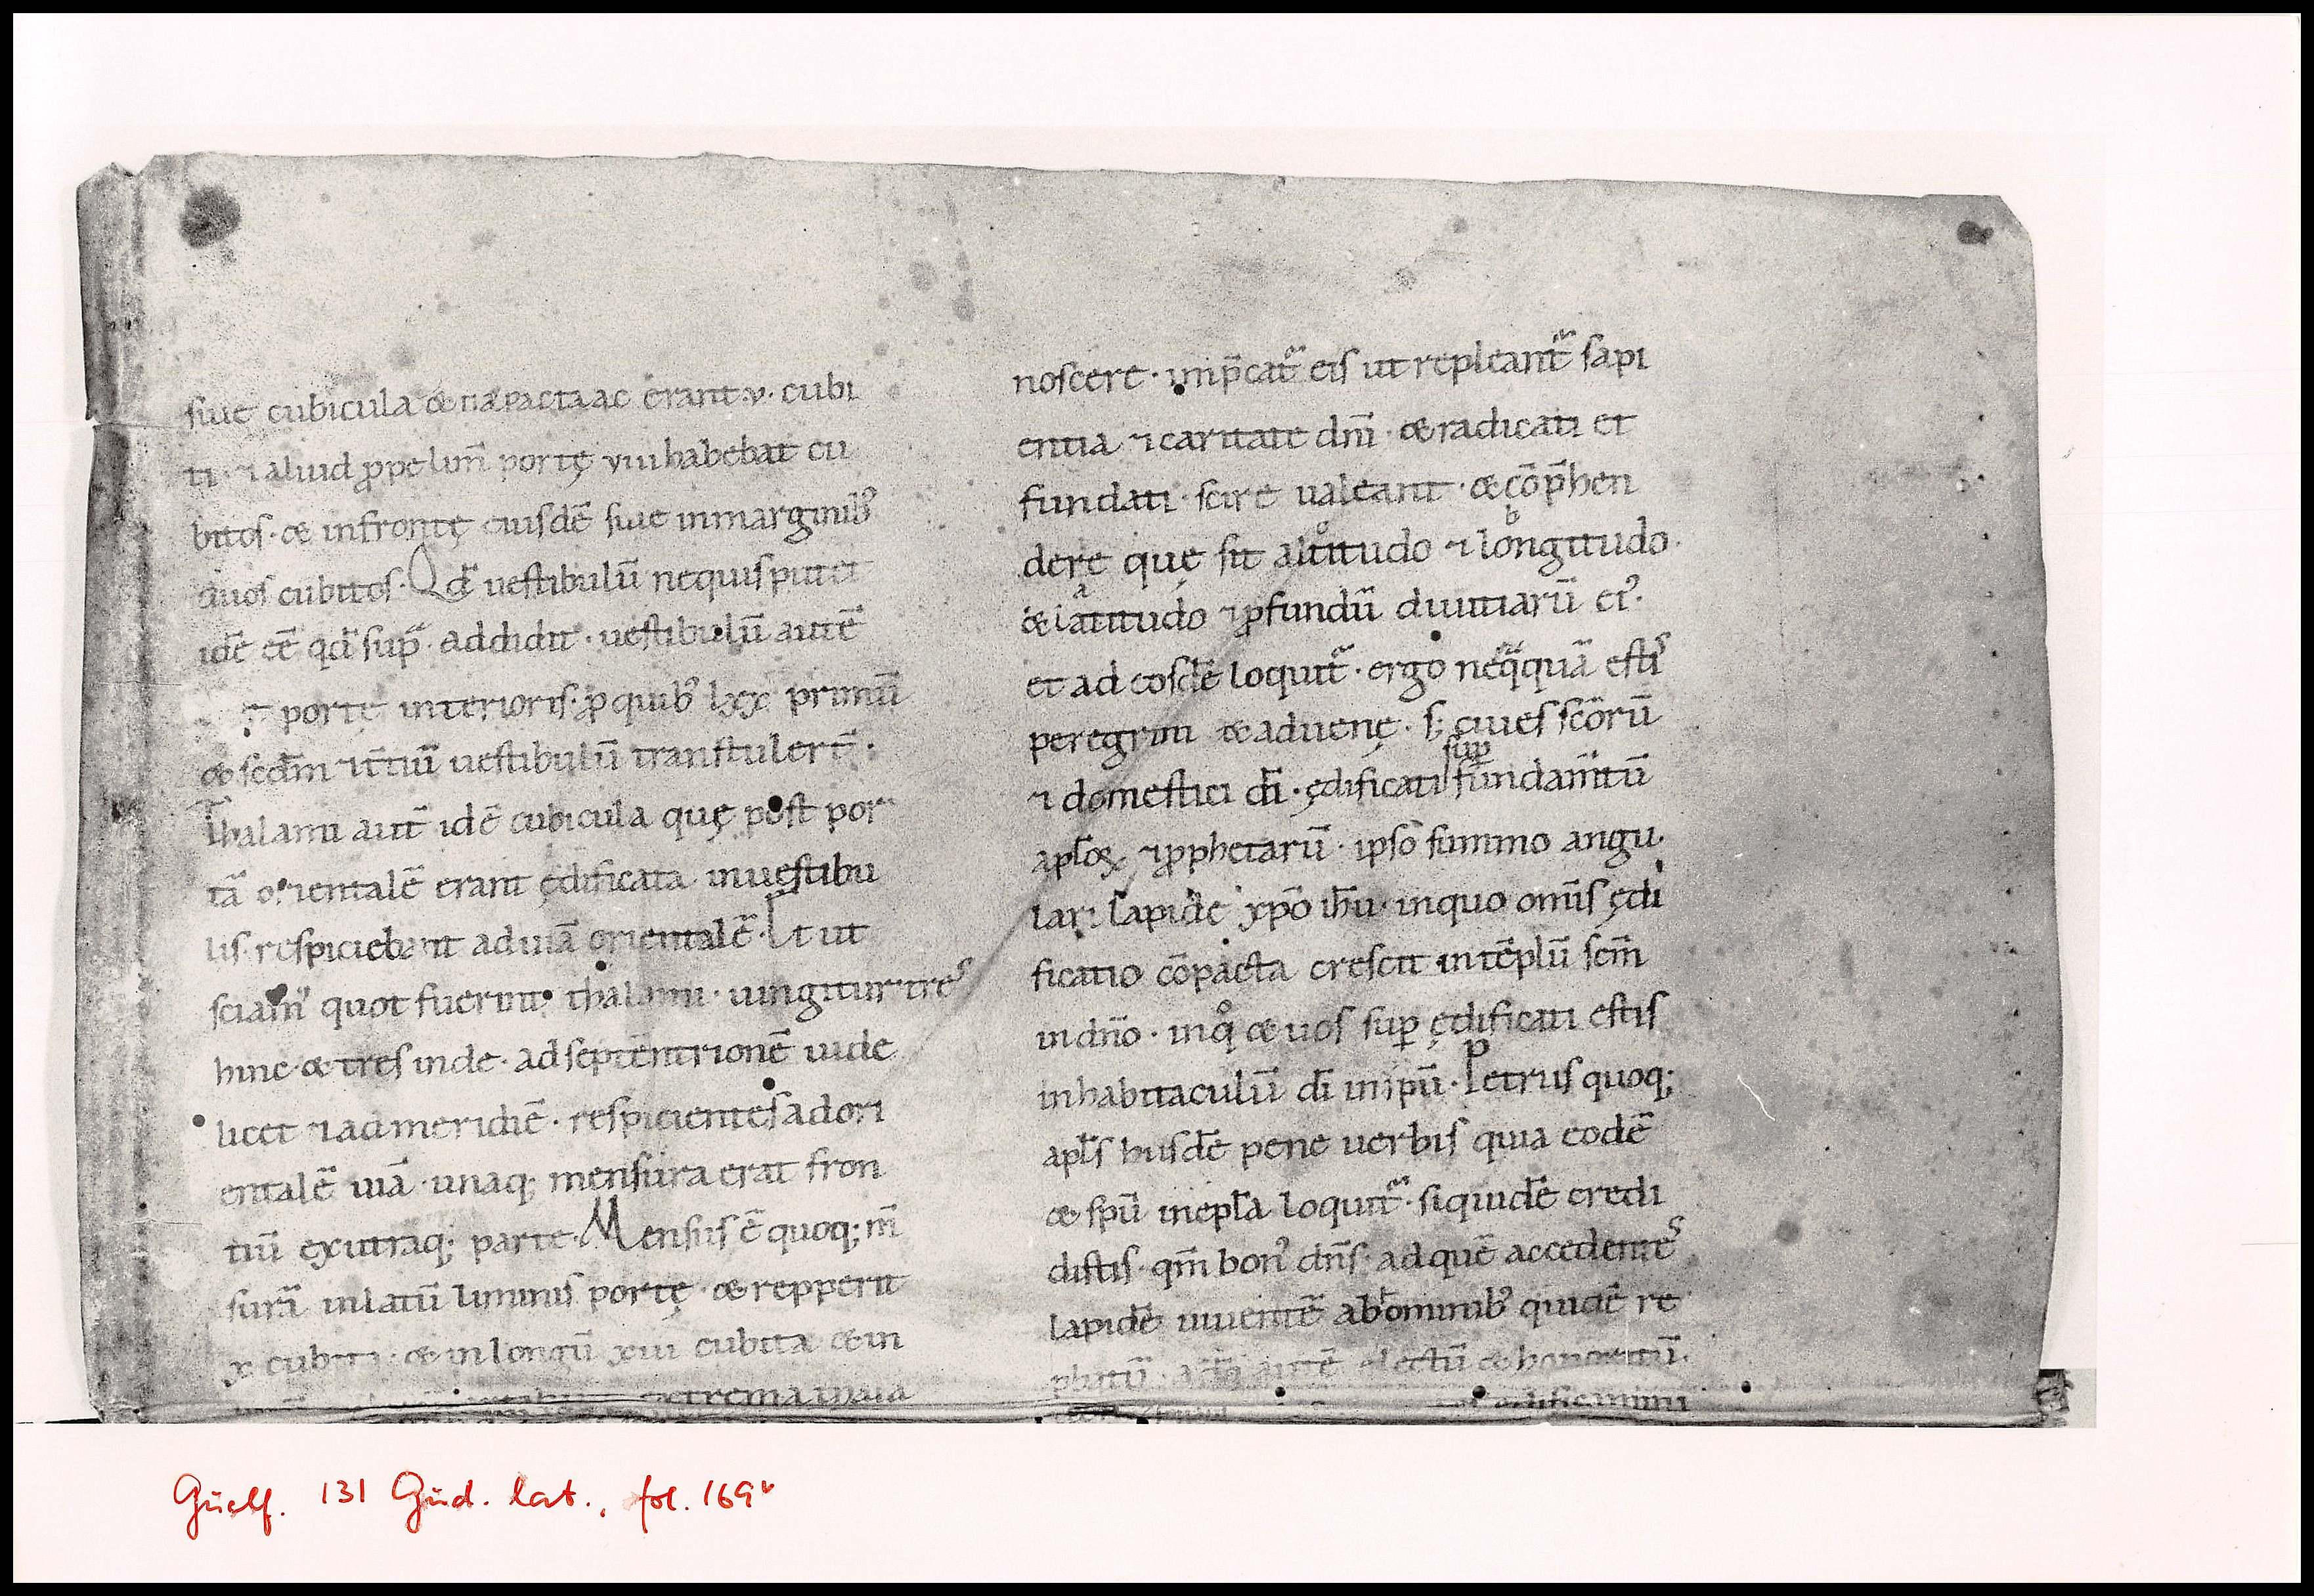 siue cubicula & parta ac erant ·v· cubi
ti· ⁊ aliud ꝓpe lim̄ portę viii habebat cu
bitos· & in frontę eiusdē siue in marginib᾽
duos cubitos· Qđ uestibulū nequis putet
idē eē qđ sup̄ addidit· uestibulū autē
portę interioris· ꝓ quib᾽ lxx primū
& scđm ⁊ t̄tiū uestibulū transtulert̄·
Thalami aut̄ idē cubicula quę post por
tā orientalē erant ędificata in uestibu
lis respiciebant ad uiā orientalē· Et ut
sciam᾽ quot fuerint thalami· iungitur· tres
hinc & tres inde· ad septēntrionē uide
licet ⁊ ad meridiē· respicientes ad ori
entalē uiā· unaq; mensura erat fron
tiū ex utraq; parte· Mensus ē quoq; m̄
surā in latū liminis portę· & repperit
x cubita· & in longū xiii cubita & in
extrema
noscere· imp̄cat᷑ eis ut repleant᷑ sapi
entia ⁊ caritate dn̄i· & radicati et
fundati· scire ualeant· & cōp̄hen
dere quę sit altitudo ⁊ longitudo·
& latitudo ⁊ ꝓfundū diuitiarū ei᾽·
et ad eosdē loquit᷑· ergo neq̄quā estis
peregrini & aduenę· s; ciues scōrū
⁊ domestici dī· ędificati sup̄ fundam̄tū
apl̄oꝝ ⁊ ꝓphetarū· ipso summo angu
lari lapide xp̄o ih̄u· in quo om̄is ędi
ficatio cōpacta crescit in tēplū sc̄m
in dn̄o· in qͦ & uos sup̄ ędificati estis
in habitaculū dī in sp̄u· Petrus quoq;
apl̄s hisdē pene uerbis quia eodē
& sp̄u in ep̄la loquit᷑· siquidē credi
distis· qm̄ bon᾽ dn̄s· ad quē accedentes
lapidē uiuentē ab hominib᾽ quidē re
phatū· a dō autē electū & honoratū·
ędificamini
Guelf. 131 Gud. lat., fol. 169ᵛ